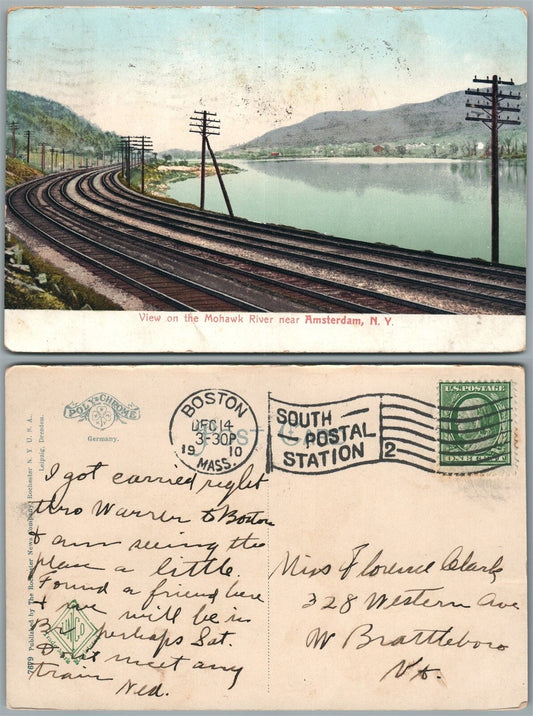 View on the Mohawk River near Amsterdam, N. Y.
POLYCHROME
Germany.
BOSTON
DEC 14
3-30P
19 10
MASS.
SOUTH
POSTAL
STATION
2
U.S. POSTAGE
ONE CENT
7679 Published by The Rochester News Company, Rochester N. Y. U. S. A.
Leipzig, Dresden.
I got carried right
thro Warren to Boston
I am seeing the
place a little.
Found a friend here
& we will be in
B perhaps Sat.
Dont meet any
train Ned.
Miss Florence Clark
328 Western Ave
W Brattleboro
Vt.